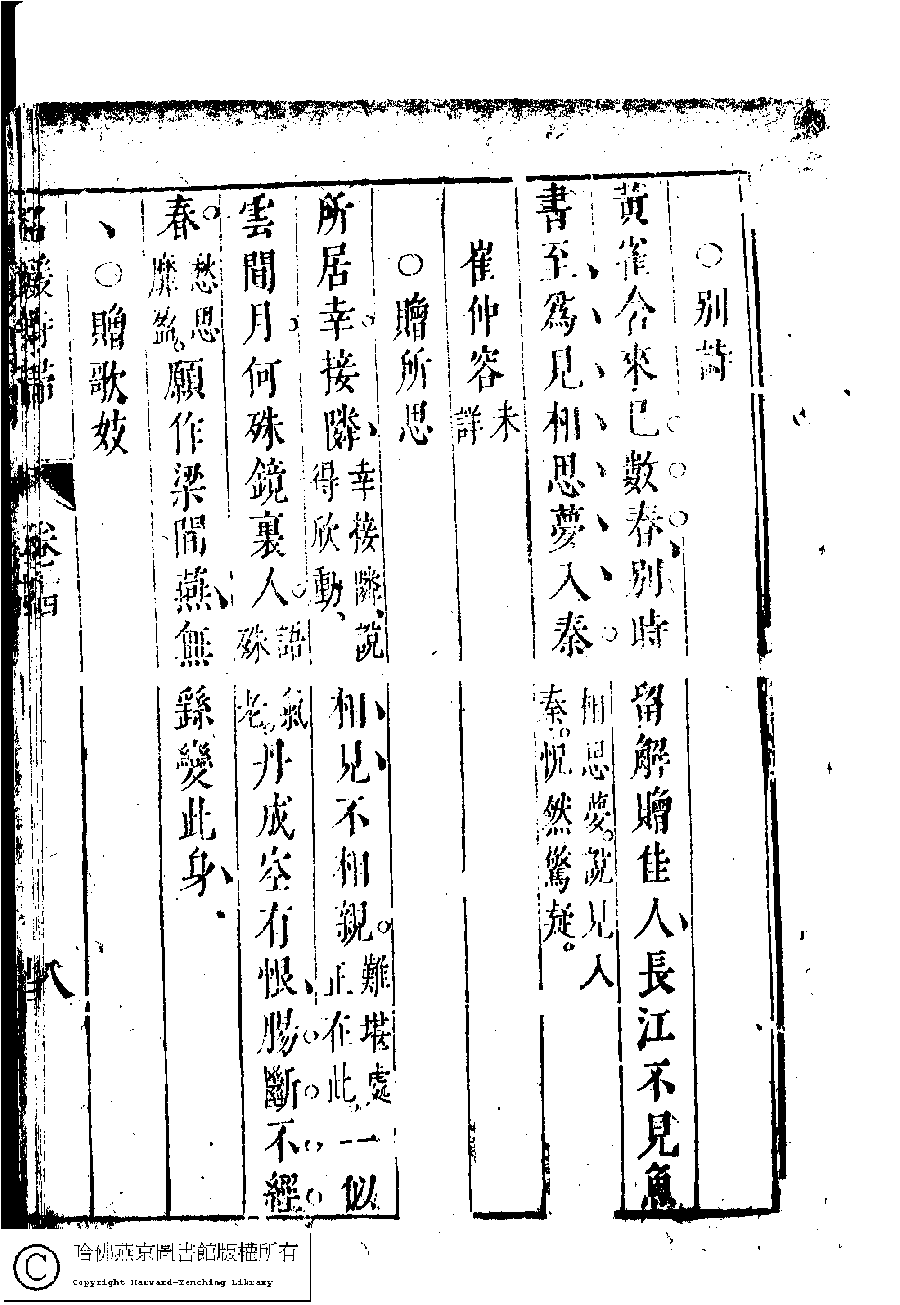 ○別詩
黃雀今來已數春別時留解贈佳人長江不見魚
書至爲見相思夢入秦相思夢。說見入秦。怳然驚疑。
崔仲容未詳
○贈所思
所居幸接隣幸接隣、說得欣動、相見不相親。難堪處正在此。一似
雲間月何殊鏡裏人。語氣殊老。丹成空有恨腸斷不經
春。愁思靡盈。願作梁間燕無繇變此身
○贈歌妓
名媛詩歸
八
哈佛燕京圖書館版權所有
Copyright Harvard-Yenching Library